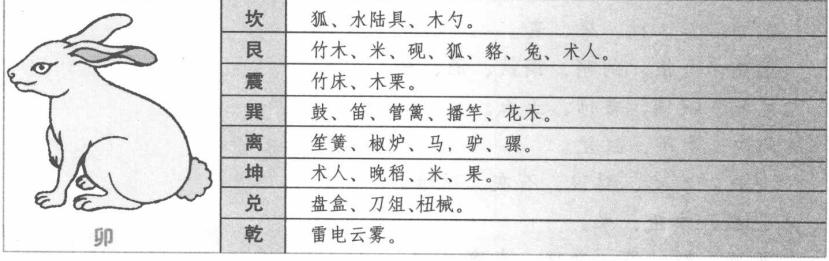 坎 狐、水陆具、木勺。
艮 竹木、米、砚、狐、貉、兔、术人。
震 竹床、木栗。
巽 鼓、笛、管篱、播竿、花木。
离 笙簧、椒炉、马，驴、骡。
坤 术人、晚稻、米、果。
兑 盘盒、刀俎、杻械。
乾 雷电云雾。
卯